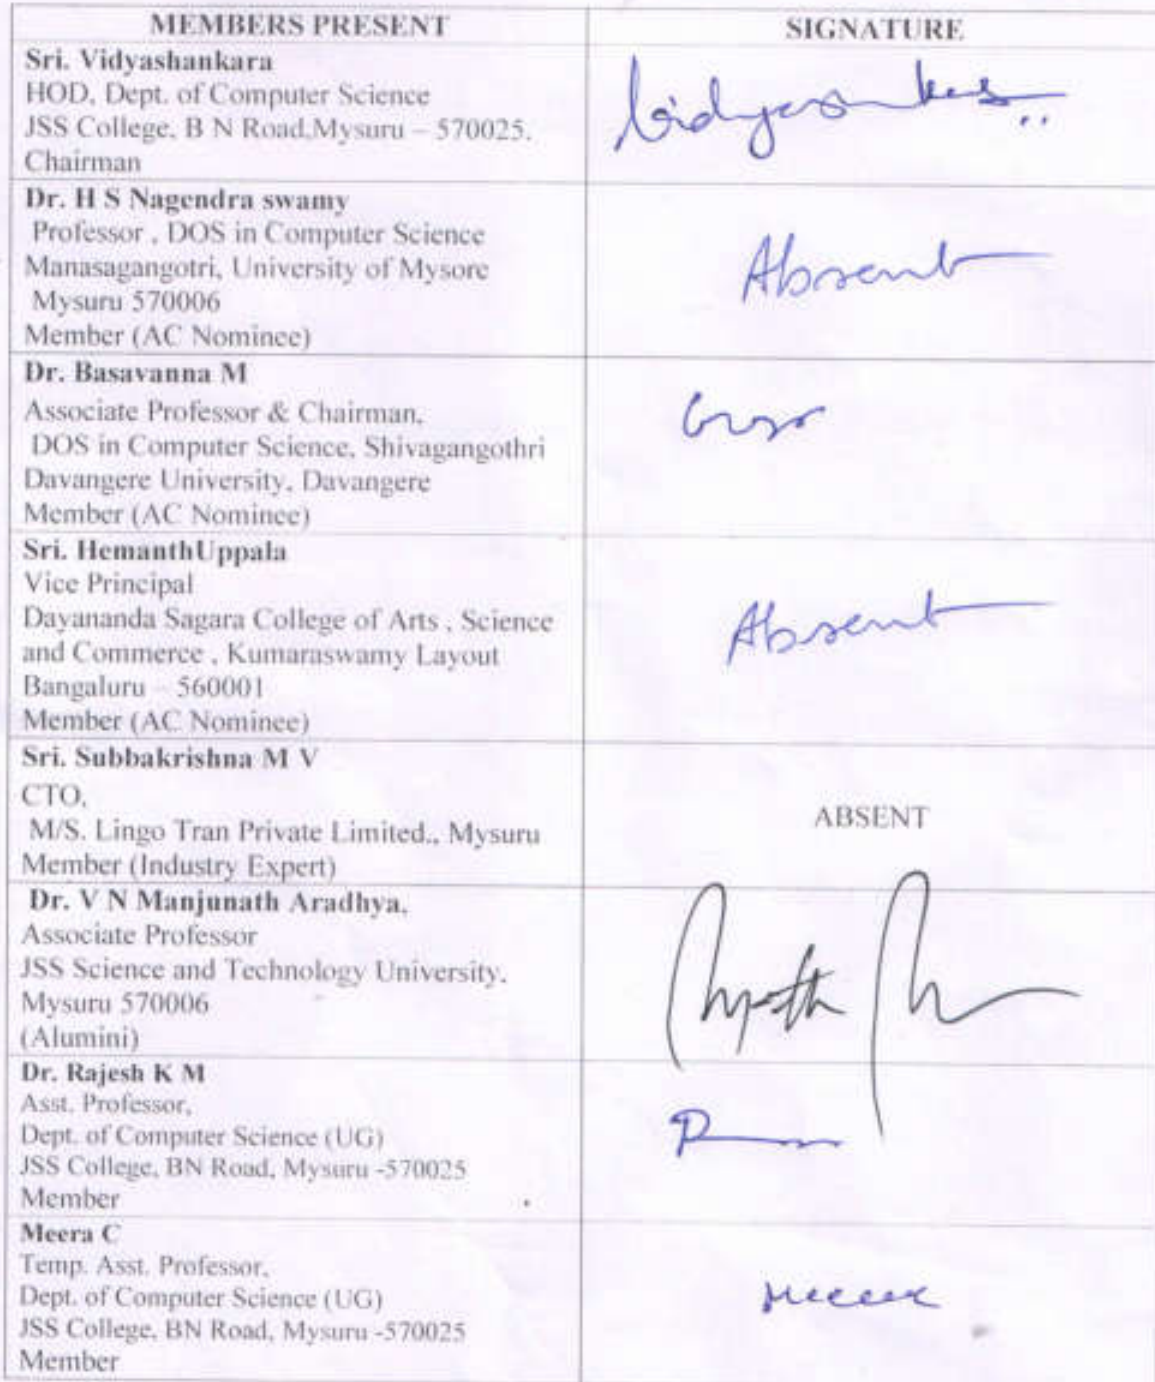 MEMBERS PRESENT SIGNATURE
Sri. Vidyashankara
HOD, Dept. of Computer Science
JSS College, B N Road,Mysuru – 570025.
Chairman
Dr. H S Nagendra swamy
Professor , DOS in Computer Science
Manasagangotri, University of Mysore
Mysuru 570006
Member (AC Nominee)
Absent
Dr. Basavanna M
Associate Professor & Chairman,
DOS in Computer Science, Shivagangothri
Davangere University, Davangere
Member (AC Nominee)
Sri. HemanthUppala
Vice Principal
Dayananda Sagara College of Arts , Science
and Commerce , Kumaraswamy Layout
Bangaluru – 560001
Member (AC Nominee)
Absent
Sri. Subbakrishna M V
CTO,
M/S. Lingo Tran Private Limited., Mysuru
Member (Industry Expert)
ABSENT
Dr. V N Manjunath Aradhya,
Associate Professor
JSS Science and Technology University.
Mysuru 570006
(Alumini)
Dr. Rajesh K M
Asst. Professor,
Dept. of Computer Science (UG)
JSS College, BN Road, Mysuru -570025
Member
Meera C
Temp. Asst. Professor,
Dept. of Computer Science (UG)
JSS College, BN Road, Mysuru -570025
Member